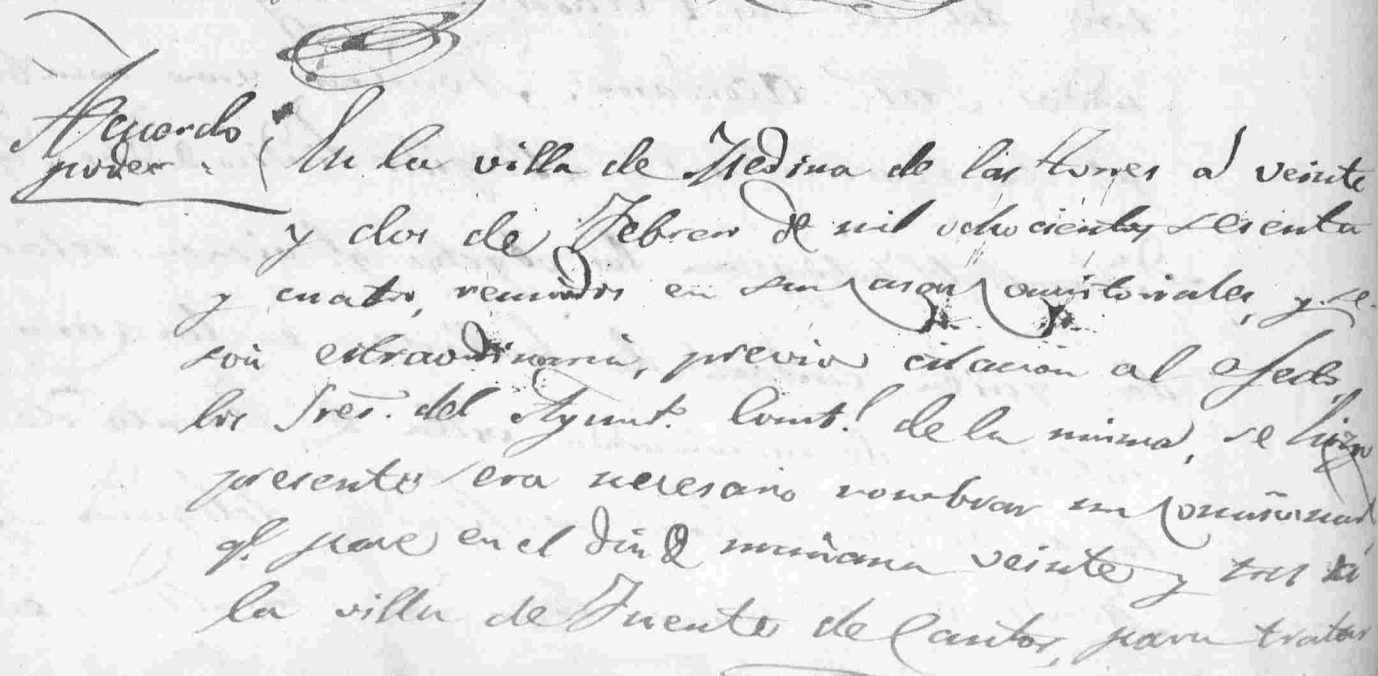 Acuerdo
poder.
En la villa de Medina de las Torres a veinte
y dos de Febrero de mil ochocientos sesenta
y cuatro, reunidos en sus casas consistoriales, y se-
sion estraordinaria, previa citacion al efecto
los Sres. del Ayunt.º Const.l de la misma, se hizo
presente era necesario nombrar un comisionado
q.e pase en el dia de mañana veinte y tres a
la villa de Fuente de Cantos, para tratar